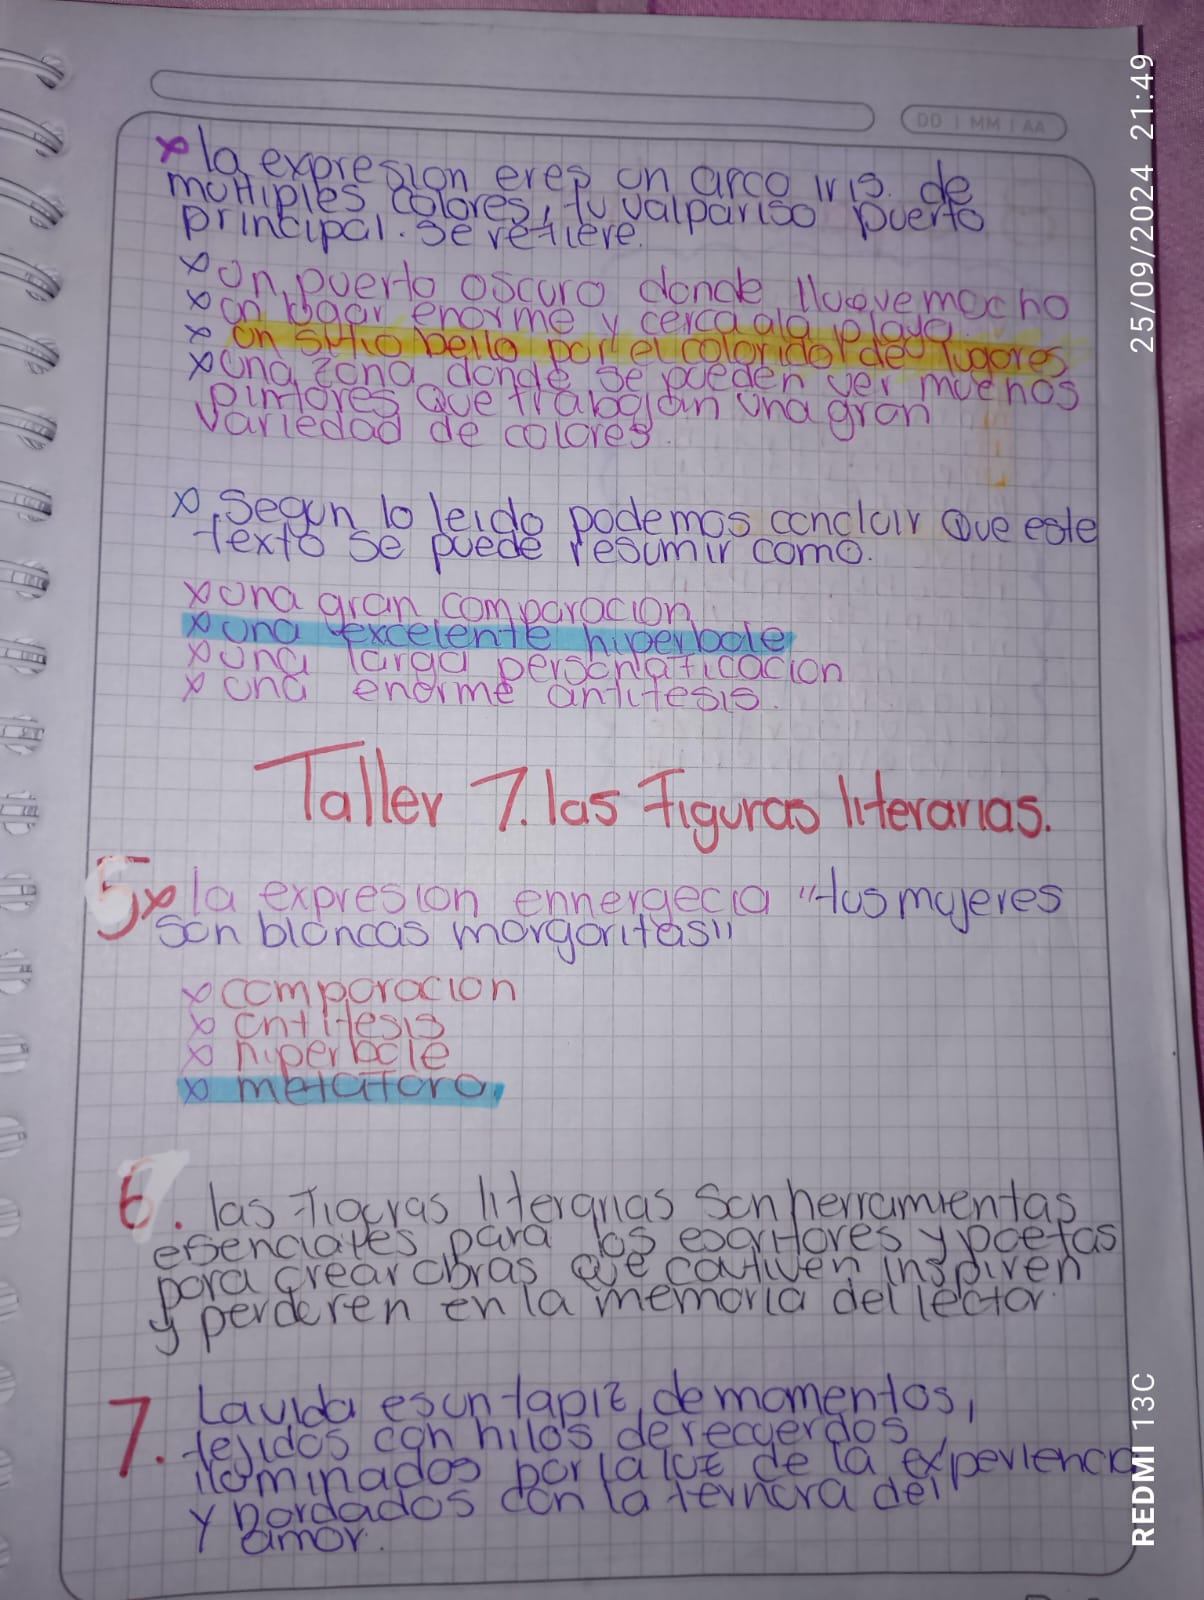 DD | MM | AA
x la expresion eres un arco iris. de
multiples colores, tu valpariso puerto
principal. se refiere.
x un puerto oscuro donde llueve mucho
x un lugar enorme y cerca a la playa.
x un sitio bello por el colorido de lugares
x una zona donde se pueden ver muchos
pintores que trabajan una gran
variedad de colores.
x segun lo leido podemos concluir que este
texto se puede resumir como.
x una gran comparacion
x una excelente hiperbole
x una larga personificacion
x una enorme antitesis.
Taller 7. las Figuras literarias.
5x la expresion ennergecia "tus mujeres
son blancas margaritas"
x comparacion
x antitesis
x hiperbole
x metafora.
6. las Figuras literarias son herramientas
esenciales para los escritores y poetas
para crear obras que cautiven inspiren
y perderen en la memoria del lector.
7. La vida es un tapiz de momentos,
tejidos con hilos de recuerdos
iluminados por la luz de la experiencia
y bordados con la ternura del
amor.
25/09/2024 21:49
REDMI 13C